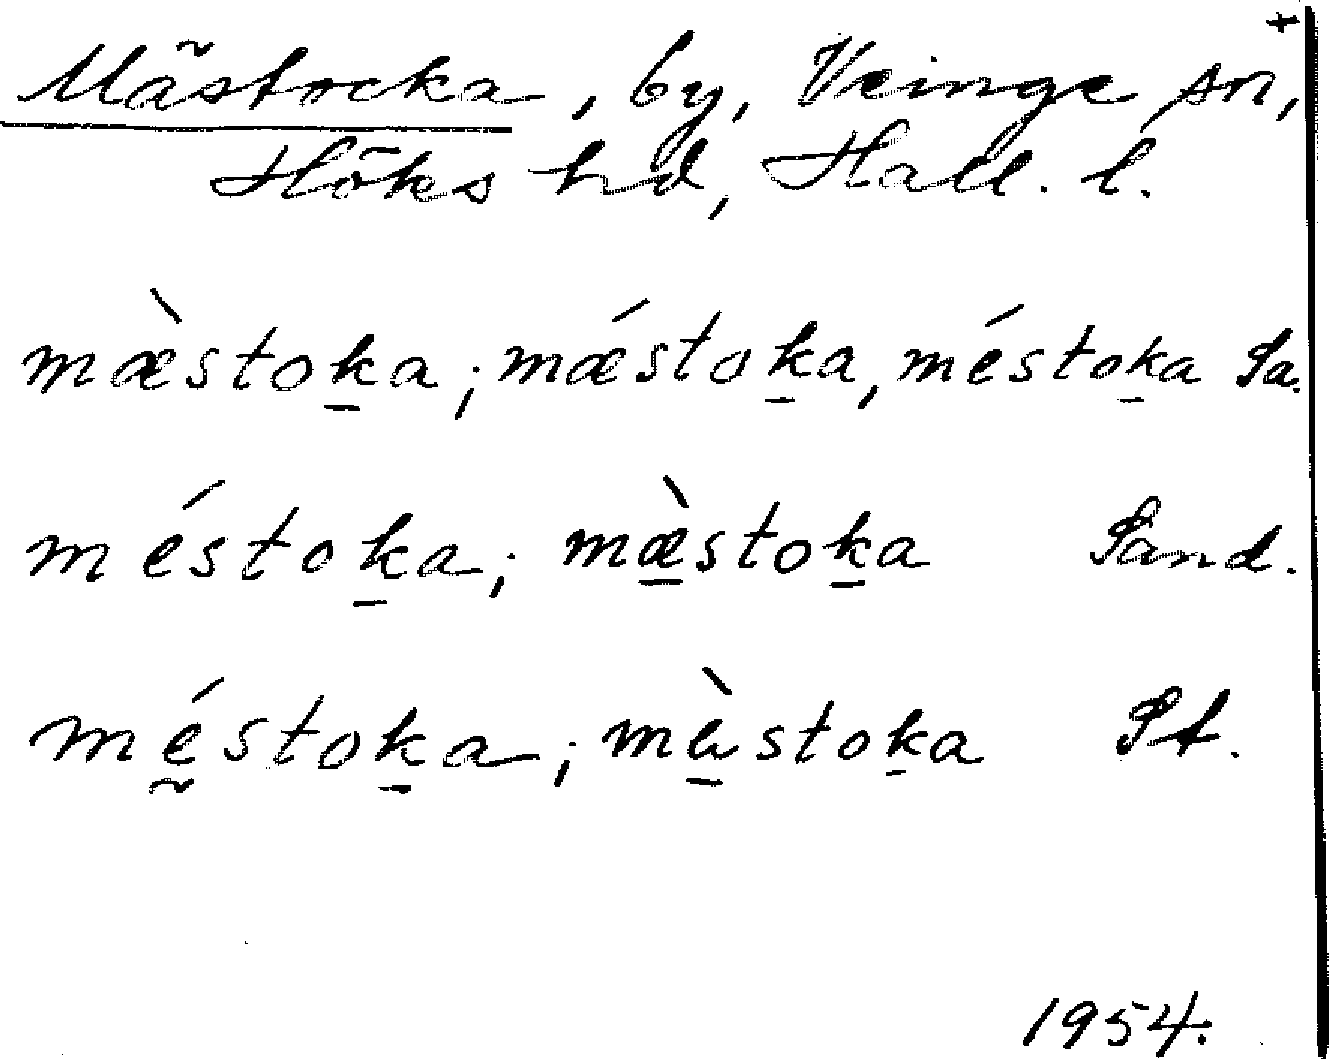 +
Mästocka, by, Veinge sn,
Höks hd, Hall. l.
mæ̀stok̠a; mǽstok̠a, méstok̠a Sa.
méstok̠a; mæ̠̀stok̠a Sand.
mḛ́stok̠a; mæ̠̀stok̠a St.
1954.